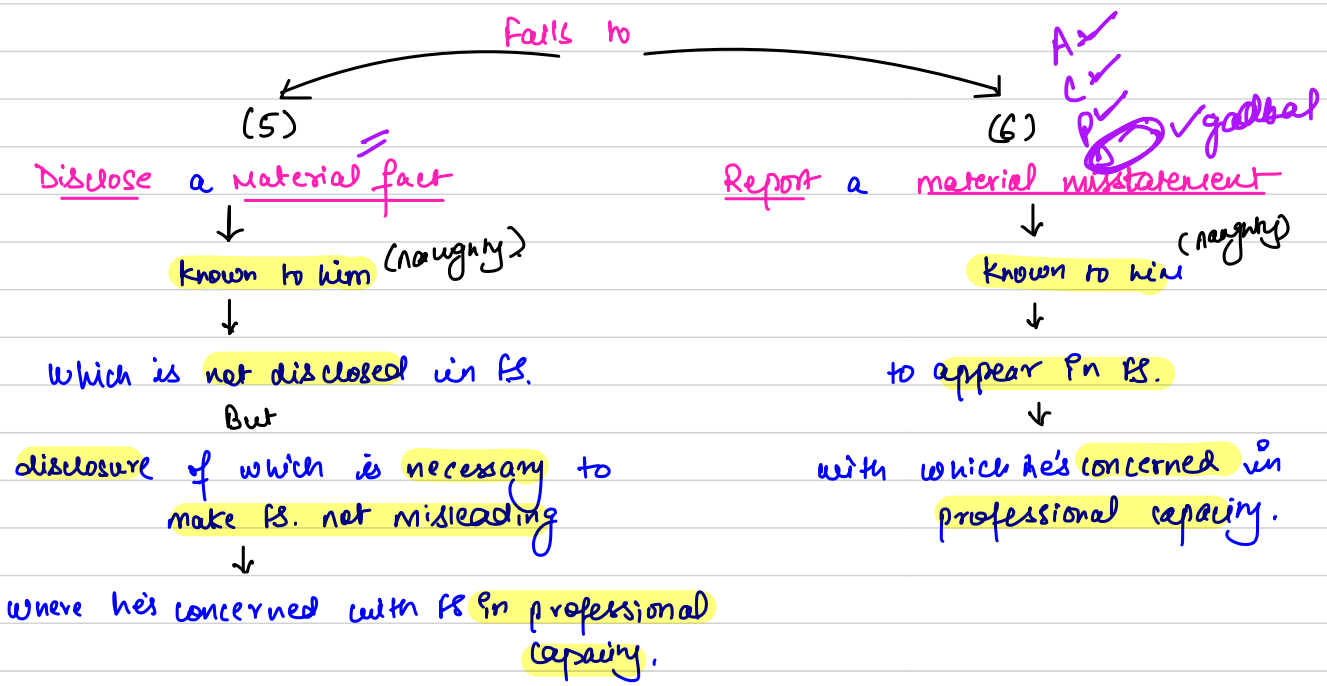 Fails to
(5)
Disclose a Material fact
known to him (naughty)
which is not disclosed in FS.
But
disclosure of which is necessary to
make FS. not misleading
where he's concerned with FS in professional
capacity.
A ✓
C ✓
P ✓
D ✓ gadbad
(6)
Report a material misstatement
known to him (naughty)
to appear in FS.
with which he's concerned in
professional capacity.